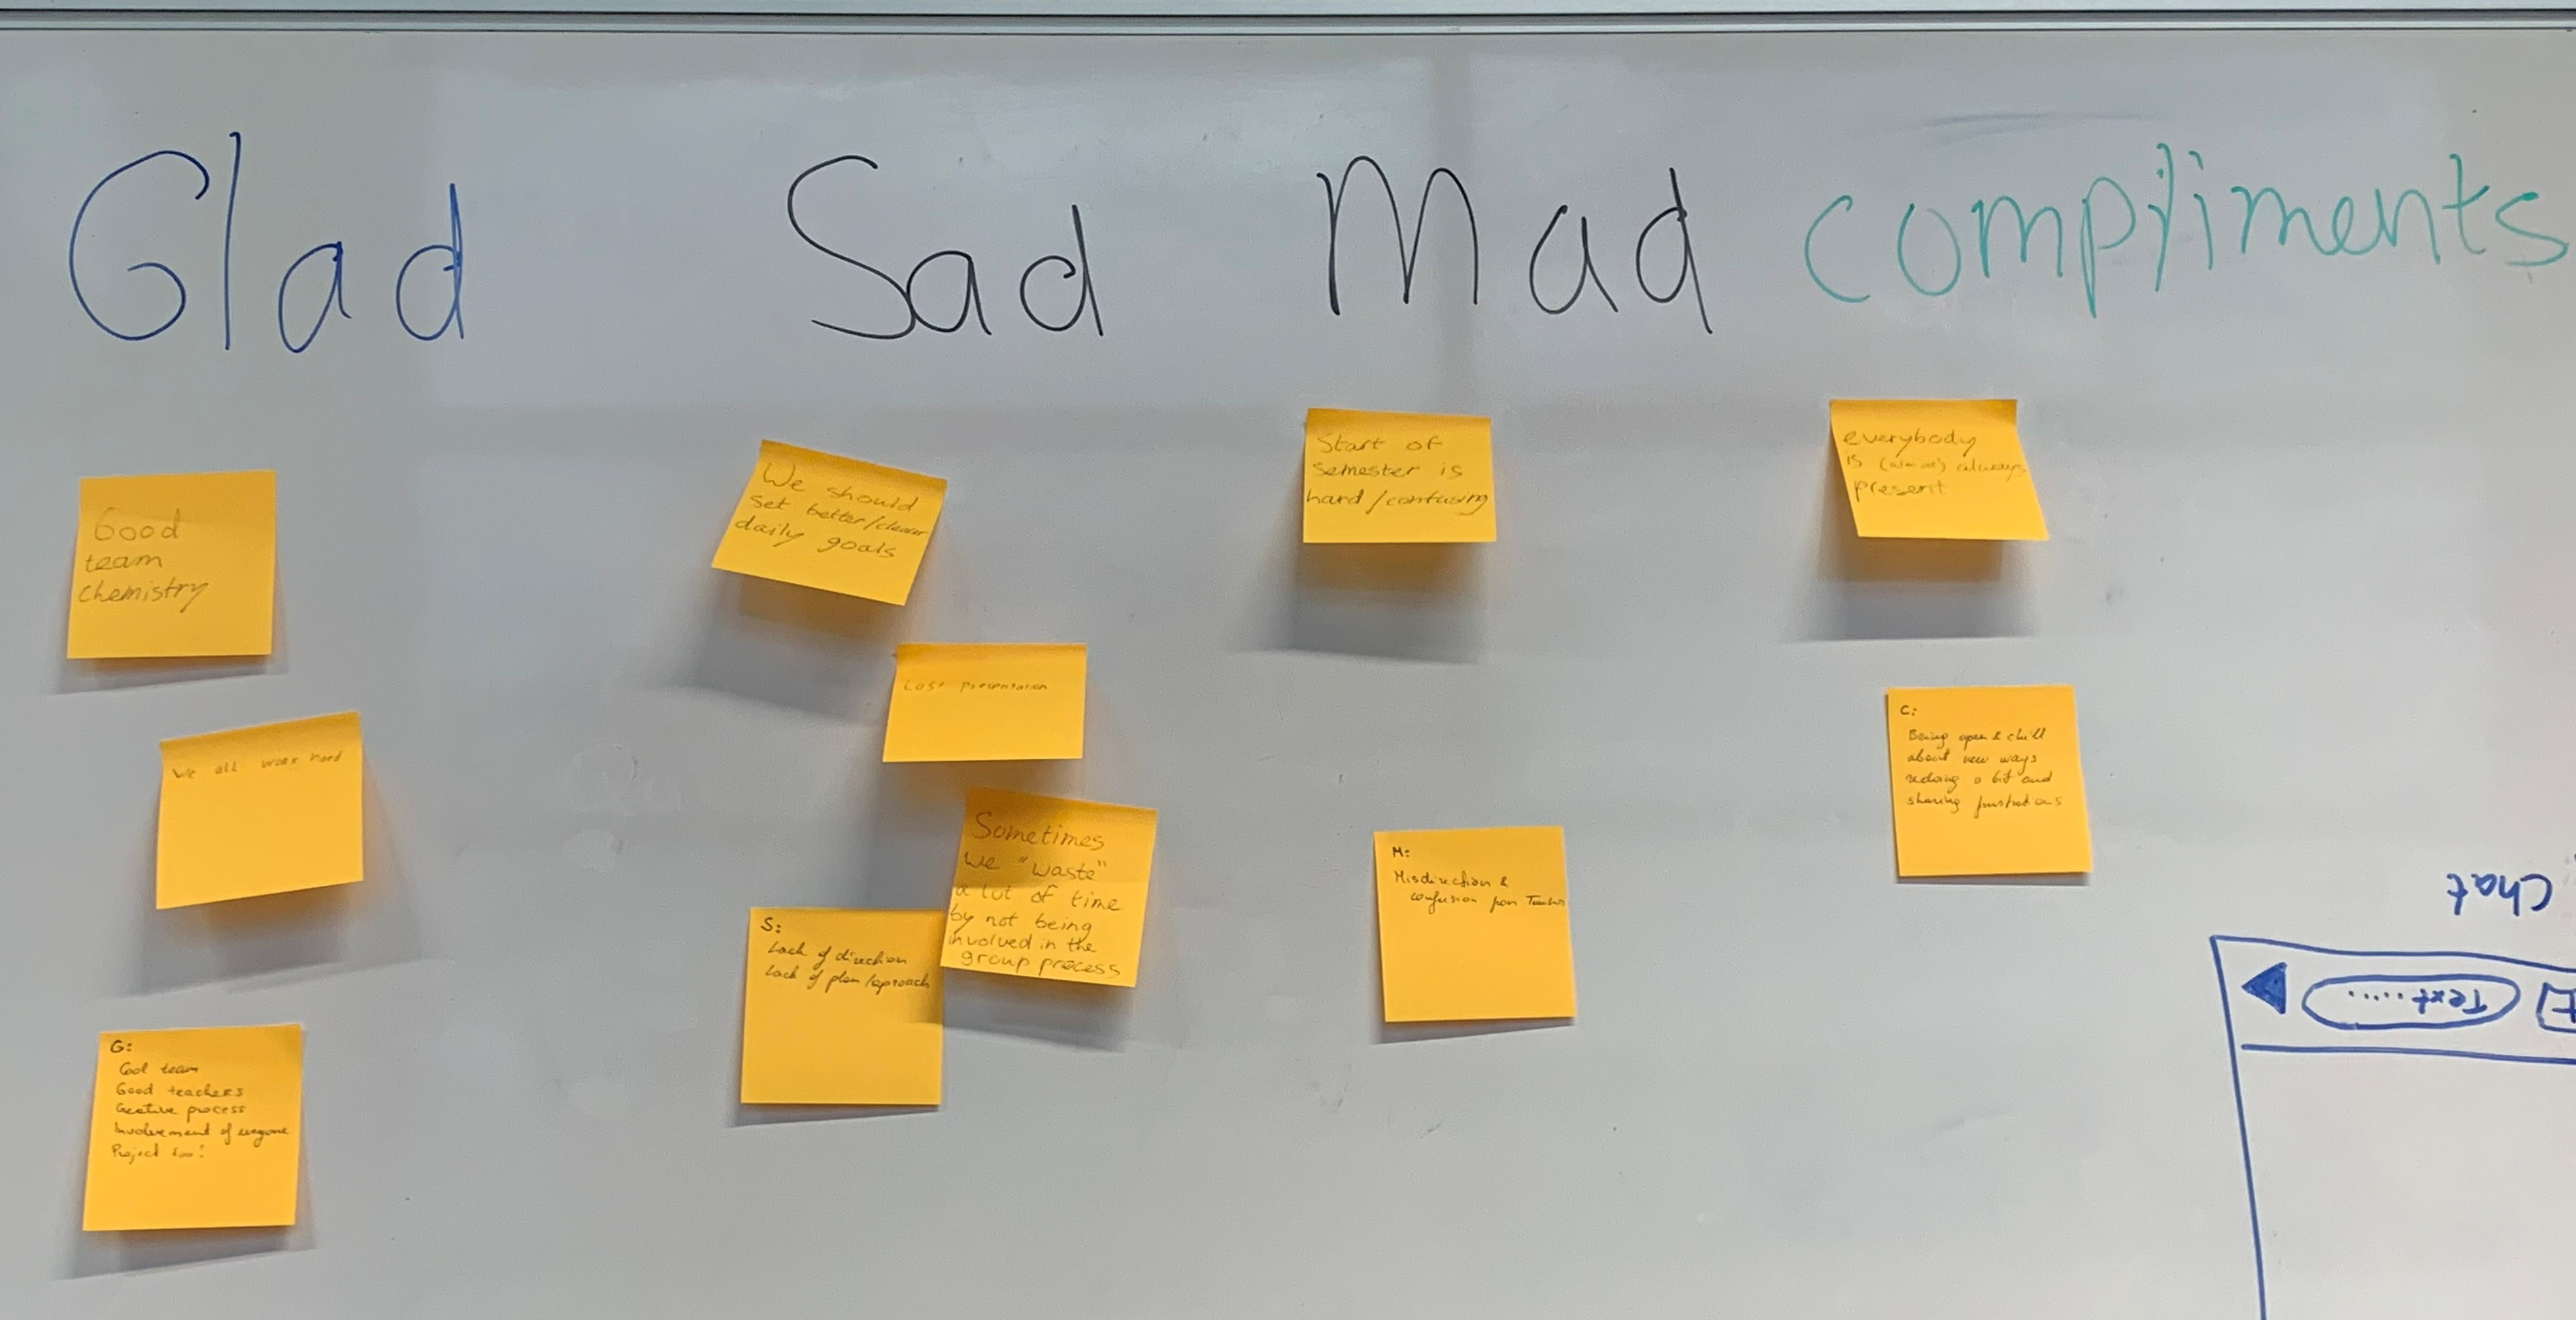 Glad
Sad
Mad
compliments
Good
team
chemistry
We all work hard
G:
Cool team
Good teachers
Creative process
Involvement of everyone
Project too!
We should
set better/clearer
daily goals
Last presentation
Sometimes
we "waste"
a lot of time
by not being
involved in the
group process
S:
Lack of direction
Lack of plan/aproach
Start of
semester is
hard/confusing
M:
Misdirection &
confusion from Teachers
everybody
is (almost) always
present
C:
Being open & chill
about new ways
redoing a bit and
sharing frustrations
Chat
Text......